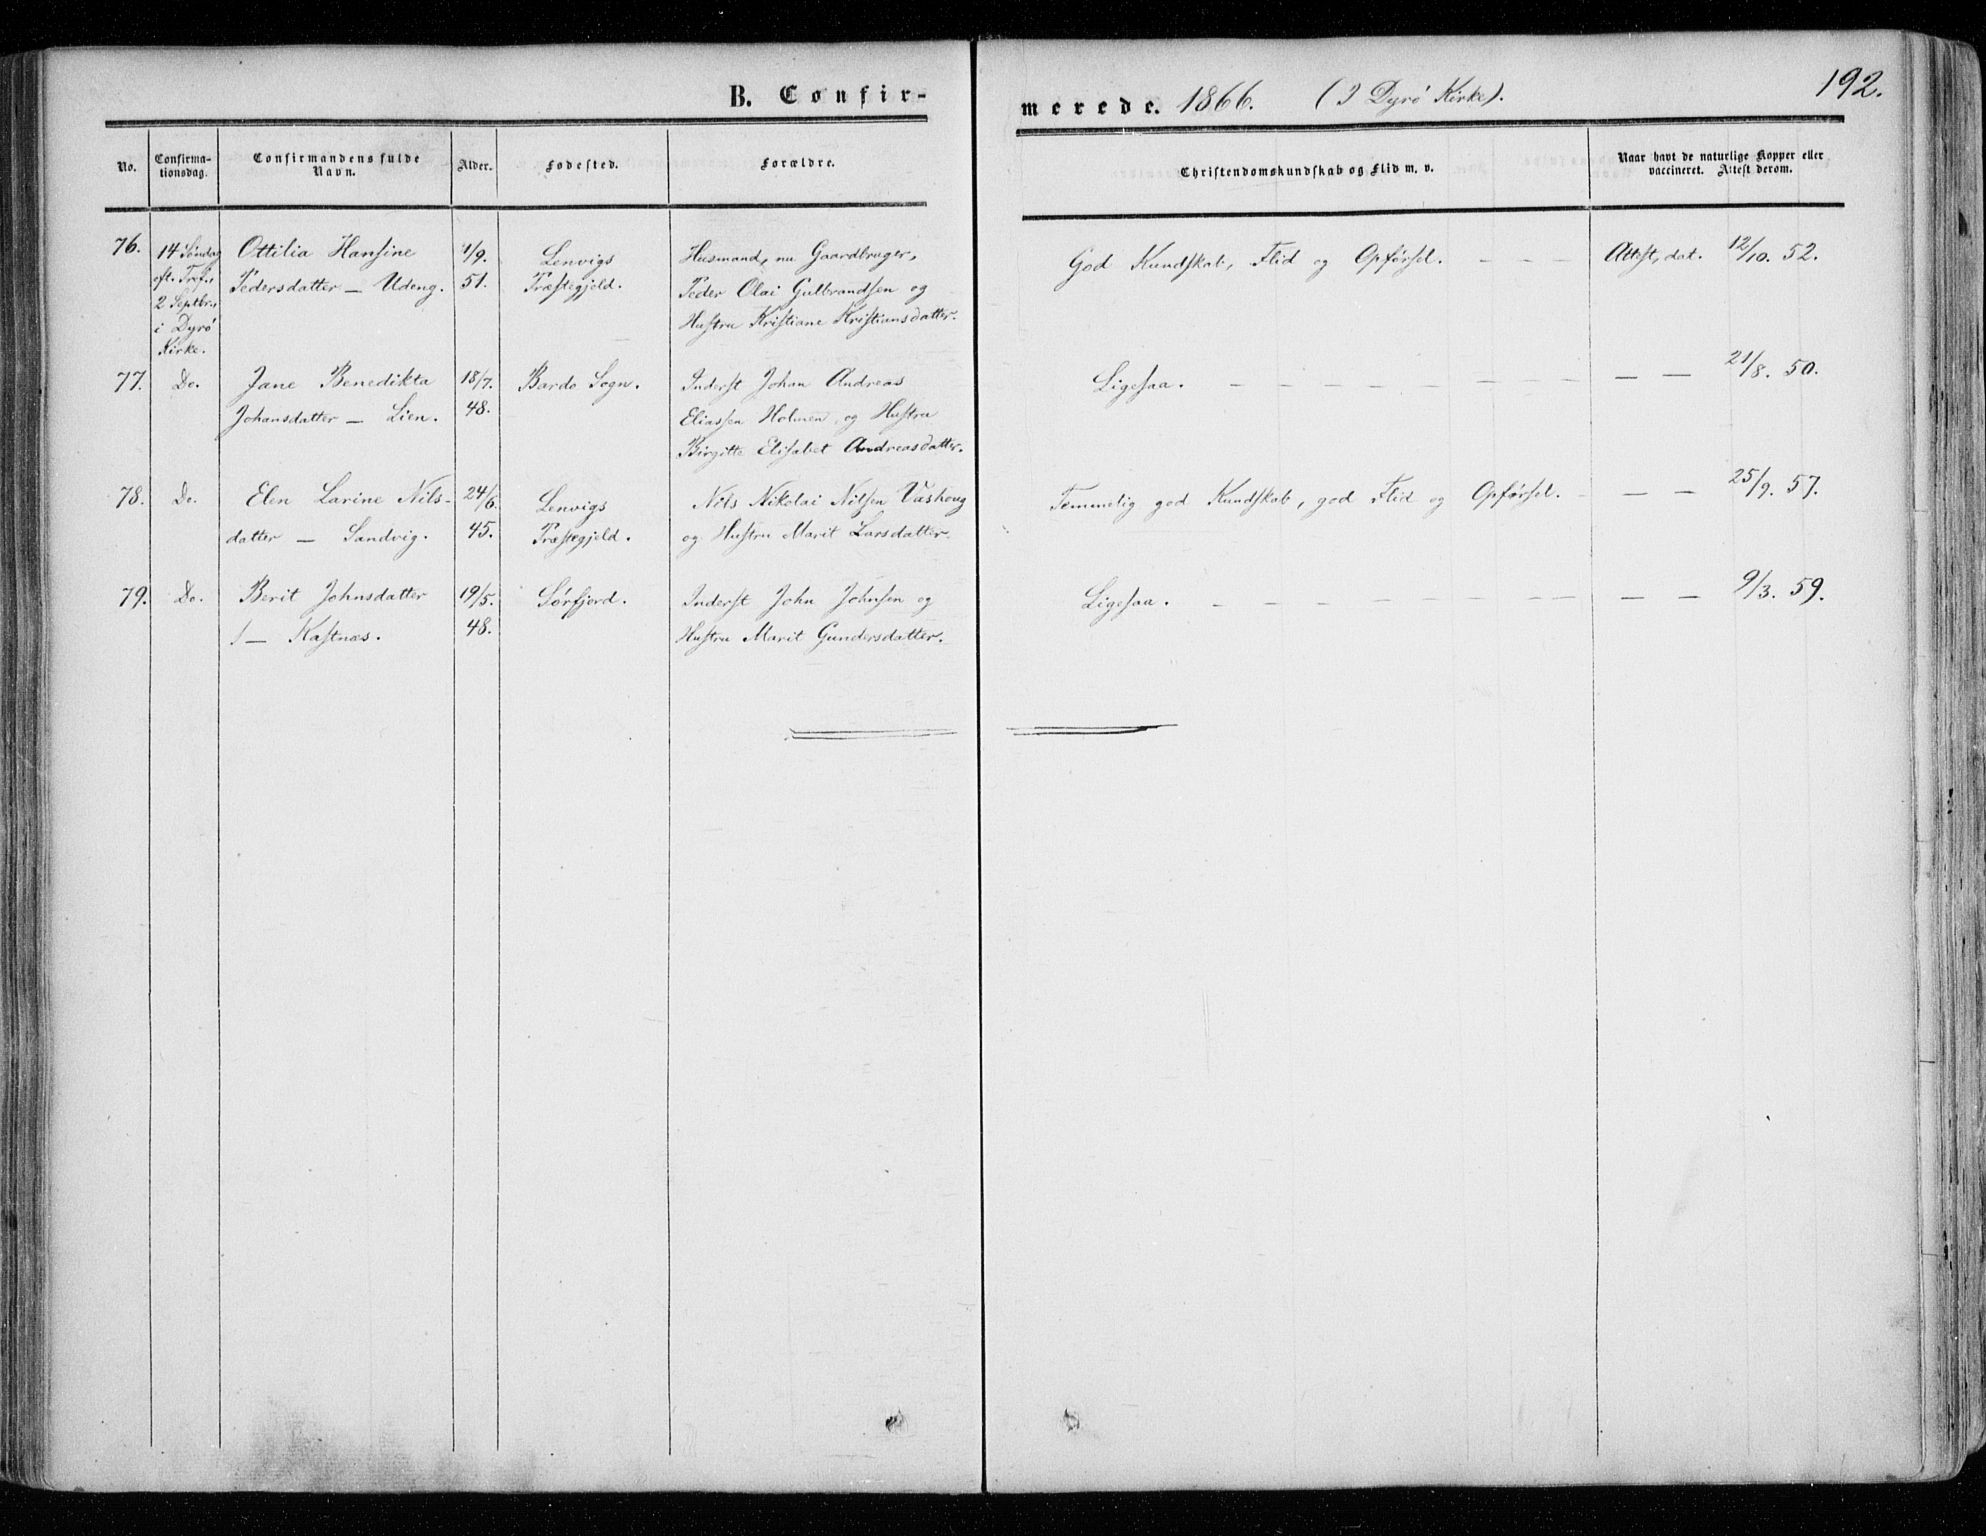 B. Confir-
merede. 1866. (I Dyrö Kirke).
192.
No.
Confirma-
tionsdag.
Confirmandens fulde
Navn.
Alder.
Fødested.
Forældre.
Christendomskundskab og Flid m. v.
Naar havt de naturlige Kopper eller
vaccineret. Attest derom.
76.
14 Søndag
eft. Tref.,
2 Septbr.,
i Dyrö
Kirke.
Ottilia Hansine
Pedersdatter — Udeng.
4/9.
51.
Lenvigs
Præstegjeld.
Husmand, nu Gaardbruger,
Peder Olai Gulbrandsen og
Hustru Kristiane Kristiansdatter.
God Kundskab, Flid og Opførsel. — — —
Attest, dat. 12/10. 52.
77.
Do.
Jane Benedikta
Johansdatter — Lien.
18/7.
48.
Bardo Sogn.
Inderst Johan Andreas
Eliassen Holmen, og Hustru
Birgitte Elisabet Andreasdatter.
Ligesaa. — — — — — — — —
— — 21/8. 50.
78.
Do.
Elen Larine Nils-
datter — Sandvig.
24/6.
45.
Lenvigs
Præstegjeld.
Nils Nikolai Nilsen Vashoug
og Hustru Marit Larsdatter.
Temmelig god Kundskab, god Flid og Opførsel. —
— — 25/9. 57.
79.
Do.
Berit Johnsdatter
/— Kastnæs.
19/5.
48.
Sørfjord.
Inderst John Johnsen og
Hustru Marit Gundersdatter.
Ligesaa. — — — — — — — —
— — 9/3. 59.